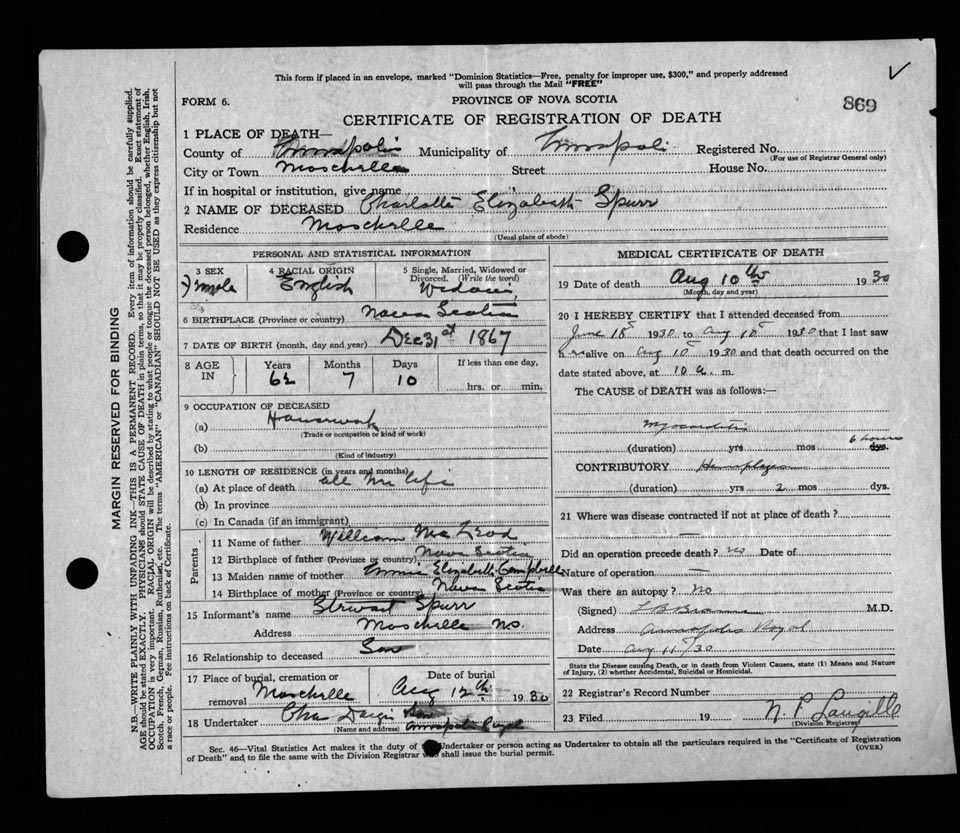 This form if placed in an envelope, marked "Dominion Statistics—Free, penalty for improper use, $300," and properly addressed
will pass through the Mail "FREE"
FORM 6.
PROVINCE OF NOVA SCOTIA
869
CERTIFICATE OF REGISTRATION OF DEATH
1 PLACE OF DEATH—
County of Annapolis Municipality of Annapolis Registered No.
(For use of Registrar General only)
City or Town Moschelle Street House No.
If in hospital or institution, give name
2 NAME OF DECEASED Charlotte Elizabeth Spurr
Residence Moschelle
(Usual place of abode)
PERSONAL AND STATISTICAL INFORMATION
3 SEX
Female
4 RACIAL ORIGIN
English
5 Single, Married, Widowed or
Divorced. (Write the word)
6 BIRTHPLACE (Province or country) Nova Scotia
7 DATE OF BIRTH (month, day and year) Dec 31st 1867
8 AGE
IN
Years
62
Months
7
Days
10
If less than one day,
hrs. or min.
9 OCCUPATION OF DECEASED
(a) Housework
(Trade or occupation or kind of work)
(b)
(Kind of industry)
10 LENGTH OF RESIDENCE (in years and months)
(a) At place of death all life
(b) In province
(c) In Canada (if an immigrant)
Parents
11 Name of father William McLeod
12 Birthplace of father (Province or country) Nova Scotia
13 Maiden name of mother Emma Elizabeth Campbell
14 Birthplace of mother (Province or country) Nova Scotia
15 Informant's name Stewart Spurr
Address Moschelle N.S.
16 Relationship to deceased Son
17 Place of burial, cremation or
removal Moschelle
Date of burial
Aug 12th 1930
18 Undertaker Chas
(Name and address) Annapolis Royal
MEDICAL CERTIFICATE OF DEATH
19 Date of death Aug 10th 1930
(Month, day and year)
20 I HEREBY CERTIFY that I attended deceased from
June 18 1930 to Aug 10 1930 that I last saw
her alive on Aug 10 1930 and that death occurred on the
date stated above, at 10 a. m.
The CAUSE of DEATH was as follows:—
Myocarditis
6 hours
(duration) yrs mos dys.
CONTRIBUTORY Hemiplegia
(duration) yrs 2 mos dys.
21 Where was disease contracted if not at place of death?
—
Did an operation precede death? no Date of
Nature of operation —
Was there an autopsy? No
(Signed) L B M.D.
Address Annapolis Royal
Date Aug 11/30
State the Disease causing Death, or in death from Violent Causes, state (1) Means and Nature
of Injury, (2) whether Accidental, Suicidal or Homicidal.
22 Registrar's Record Number
23 Filed 19 N. P. Langille
(Division Registrar)
Sec. 46—Vital Statistics Act makes it the duty of the Undertaker or person acting as Undertaker to obtain all the particulars required in the "Certificate of Registration
of Death" and to file the same with the Division Registrar who shall issue the burial permit.
(OVER)
MARGIN RESERVED FOR BINDING
N.B.—WRITE PLAINLY WITH UNFADING INK—THIS IS A PERMANENT RECORD. Every item of information should be carefully supplied.
AGE should be stated EXACTLY. PHYSICIANS should STATE CAUSE OF DEATH in plain terms, so that it may be properly classified. Exact statement of
OCCUPATION is very important. RACIAL ORIGIN will be described by stating to what people or tongue the deceased person belonged, whether English, Irish,
Scotch, French, German, Russian, Ruthenian, etc. The terms "AMERICAN" or "CANADIAN" SHOULD NOT BE USED as they express citizenship but not
a race or people. See instructions on back of Certificate.